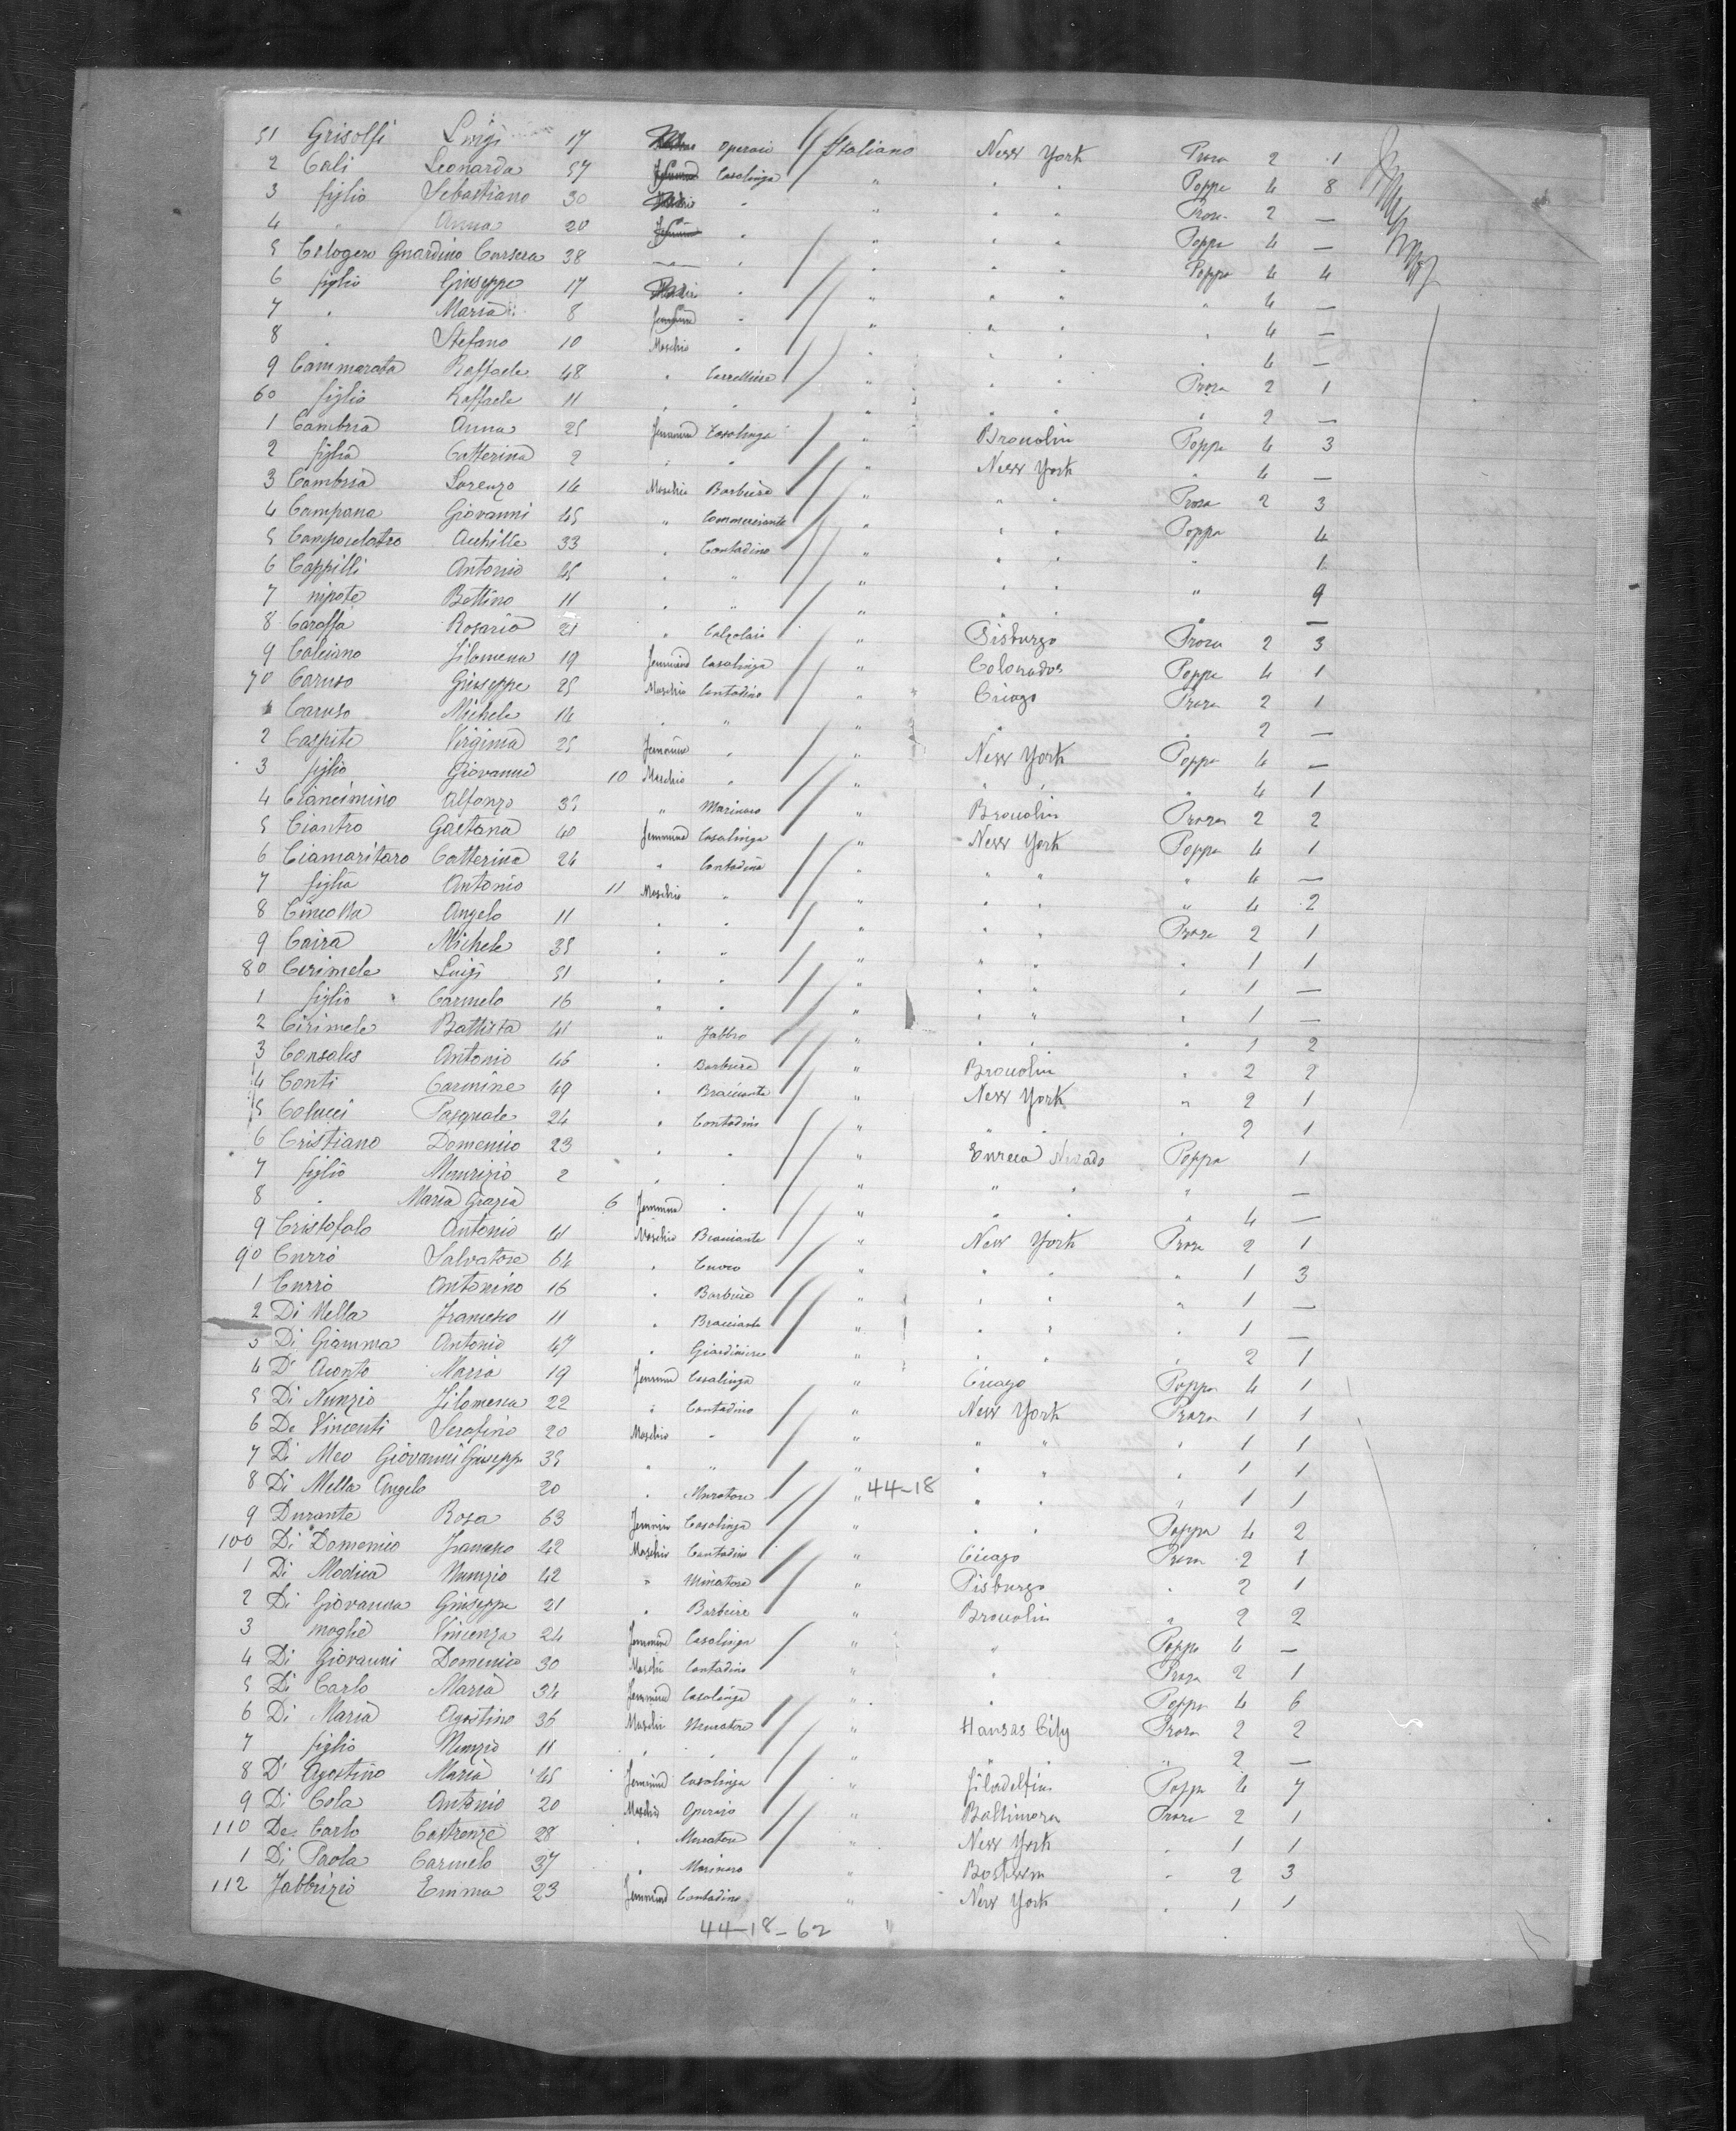 51 Grisolfi Luigi 17 Operaio Italiano New York Prora 2 1
2 Cali Leonarda 57 Casalinga " " " Poppa 4 8
3 figlio Sebastiano 30 " " " " Prora 2 —
4 " Anna 20 " " " " Poppa 4 —
5 Calogera Guardino Corsera 38 — " " " " Poppa 4 4
6 figlio Giuseppe 17 " " " " " 4 —
7 " Maria 8 " " " " " 4 —
8 " Stefano 10 Maschio " " " " " 4 —
9 Cammarata Raffaele 48 " Carrettiere " " " Prora 2 1
60 figlio Raffaele 11 " " " " " " 2 —
1 Cambria Anna 25 Femmina Casalinga " Brouolin Poppa 4 3
2 figlia Catterina 2 " " " New York " 4 —
3 Cambria Lorenzo 14 Maschio Barbiere " " " Prora 2 3
4 Campana Giovanni 45 " Commerciante " " " Poppa 4
5 Campoelatro Achille 33 " Contadino " " " " 1
6 Cappilli Antonio 45 " " " " " " 9
7 nipote Bettino 11 " " " " " " —
8 Caroffa Rosario 21 " Calzolaio " Pisburgo Prora 2 3
9 Calciano Filomena 19 Femmina Casalinga " Colorados Poppa 4 1
70 Caruso Giuseppe 25 Maschio Contadino " Cicago Prora 2 1
1 Caruso Michele 14 " " " " " 2 —
2 Caspite Virginia 25 Femmina " " New York Poppa 4 —
3 figlio Giovanni 10 Maschio " " " " " 4 1
4 Ciancimino Alfonzo 33 " Marinaro " Brouolin Prora 2 2
5 Ciantro Gaetana 40 Femmina Casalinga " New York Poppa 4 1
6 Ciamaritaro Catterina 24 " Contadina " " " " 4 —
7 figlia Antonio 11 Maschio " " " " " 4 2
8 Cinotta Angelo 11 " " " " " Prora 2 1
9 Caira Michele 35 " " " " " " 1 1
80 Cerimele Luigi 51 " " " " " " 1 —
1 figlio Carmelo 16 " " " " " " 1 —
2 Cirimele Battista 41 " Fabbro " " " " 1 2
3 Consoles Antonio 46 " Barbiere " Brouolin " 2 2
4 Conti Carmine 49 " Bracciante " New York " 2 1
5 Colucci Pasquale 24 " Contadino " " " " 2 1
6 Cristiano Domenico 23 " " " Eureca Nevado Poppa 1
7 figlio Maurizio 2 " " " " " " —
8 " Maria Grazia 6 Femmina " " " " " 4 —
9 Cristofalo Antonio 41 Maschio Bracciante " New York Prora 2 1
90 Currò Salvatore 64 " Cuoco " " " " 1 3
1 Currò Antonino 16 " Barbiere " " " " 1 —
2 Di Nella Francesco 11 " Bracciante " " " " 1 —
3 Di Giamma Antonio 47 " Giardiniere " " " " 2 1
4 D' Aconto Maria 19 Femmina Casalinga " Cicago Poppa 4 1
5 Di Nunzio Filomena 22 " Contadino " New York Prora 1 1
6 De Vincenti Serafino 20 Maschio " " " " " 1 1
7 Di Meo Giovanni Giusepp 35 " " " " " " 1 1
8 Di Mella Angelo 20 " Muratore " 44-18 " " " 1 1
9 Durante Rosa 63 Femmina Casalinga " " " Poppa 4 2
100 Di Domenico Francesco 42 Maschio Contadino " Cicago Prora 2 1
1 Di Modica Nunzio 42 " Minatore " Pisburgo " 2 1
2 Di Giovanna Giuseppe 21 " Barbiere " Brouolin " 2 2
3 moglie Vincenza 24 Femmina Casalinga " " Poppa 4 —
4 Di Giovanni Domenico 30 Maschi Contadino " " Prora 2 1
5 Di Carlo Maria 34 Femmina Casalinga " " Poppa 4 6
6 Di Maria Agostino 36 Maschi Muratore " Hansas City Prora 2 2
7 figlio Nunzio 11 " " " " " 2 —
8 D' Agostino Maria 45 Femmina Casalinga " Filadelfia Poppa 4 7
9 Di Cola Antonio 20 Maschio Operaio " Baltimora Prora 2 1
110 De Carlo Castrenze 28 " Muratore " New York " 1 1
1 Di Paola Carmelo 37 " Marinaro " Bostwm " 2 3
112 Fabbrizio Emma 23 Femmina Contadino " New York " 1 1
44-18-62